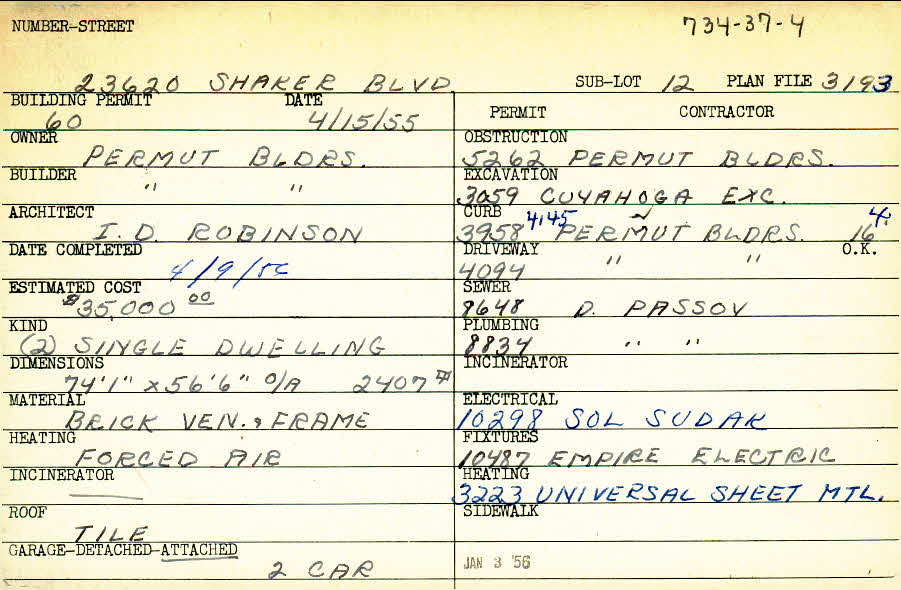 NUMBER-STREET
734-37-4
23620 SHAKER BLVD SUB-LOT 12 PLAN FILE 3193
BUILDING PERMIT DATE
60 4/15/55
OWNER
PERMUT BLDRS.
BUILDER
" "
ARCHITECT
I. D. ROBINSON
DATE COMPLETED
4/9/56
ESTIMATED COST
$35,000 00
KIND
(2) SINGLE DWELLING
DIMENSIONS
74'1" x 56'6" O/A 2407
MATERIAL
BRICK VEN. & FRAME
HEATING
FORCED AIR
INCINERATOR
ROOF
TILE
GARAGE-DETACHED-ATTACHED
2 CAR
PERMIT CONTRACTOR
OBSTRUCTION
5262 PERMUT BLDRS.
EXCAVATION
3059 CUYAHOGA EXC.
CURB 4145 4.
3958 PERMUT BLDRS. 16
DRIVEWAY " " O.K.
4094
SEWER
8648 D. PASSOV
PLUMBING
8834 " "
INCINERATOR
ELECTRICAL
10298 SOL SUDAK
FIXTURES
10487 EMPIRE ELECTRIC
HEATING
3223 UNIVERSAL SHEET MTL.
SIDEWALK
JAN 3 '56